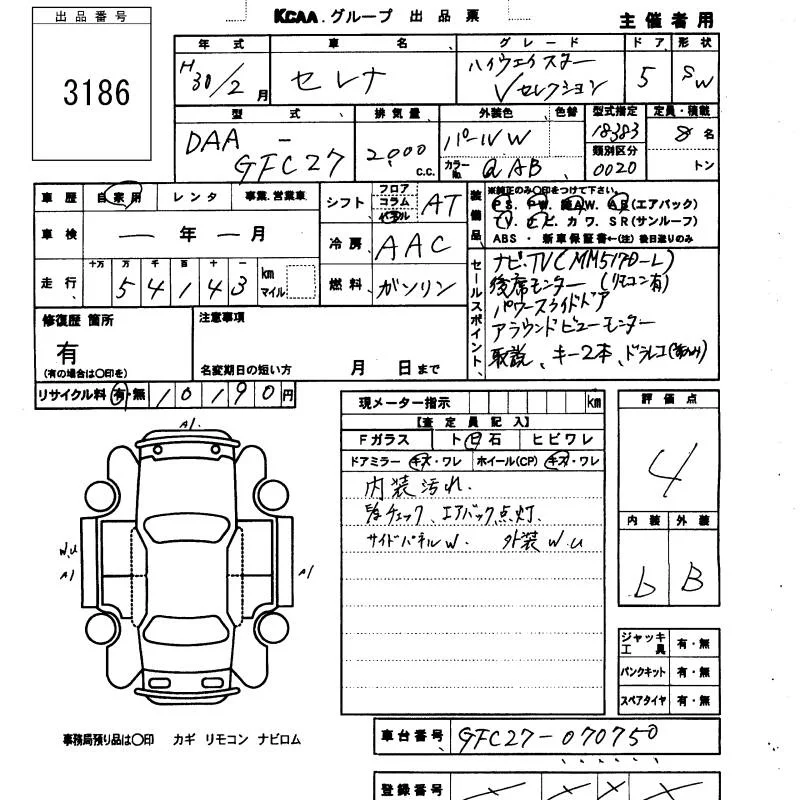 出品番号
3186
KCAA.グループ 出品票
主催者用
年式 車名 グレード ドア 形状
H30/2月 セレナ ハイウェイスター
Vセレクション 5 SW
型式 排気量 外装色 色替 型式指定 定員・積載
DAA-
GFC27 2000 c.c. パールW 18383 8名
カラーNo. QAB 類別区分 0020 トン
車歴 自家用 レンタ 事業.営業車
シフト フロア コラム AT
車検 ー年ー月
冷房 AAC
走行 十万 万 千 百 十 一
54143 km マイル
燃料 ガソリン
装備品
※純正のみ○印をつけて下さい。
PS. PW. 純AW. AB(エアバック)
TV. ナビ. カワ. SR(サンルーフ)
ABS・新車保証書←(注)後日送りのみ
セールスポイント
ナビ・TV(MM517D-L)
後席モニター(リモコン有)
パワースライドドア
アラウンドビューモニター
取説、キー2本、ドラレコ
修復歴 箇所
有
(有の場合は○印を)
注意事項
名変期日の短い方 月 日まで
リサイクル料 有・無 10190円
現メーター指示 km
【査定員記入】
Fガラス ト日石 ヒビワレ
ドアミラー キズ・ワレ ホイール(CP) キズ・ワレ
内装汚れ.
チェック、エアバック点灯.
サイドパネルW. 外装W.U
評価点
4
内装 外装
b B
A1.
W.U
A1
A1
ジャッキ工具 有・無
パンクキット 有・無
スペアタイヤ 有・無
事務局預り品は○印 カギ リモコン ナビロム
車台番号 GFC27-070750
登録番号